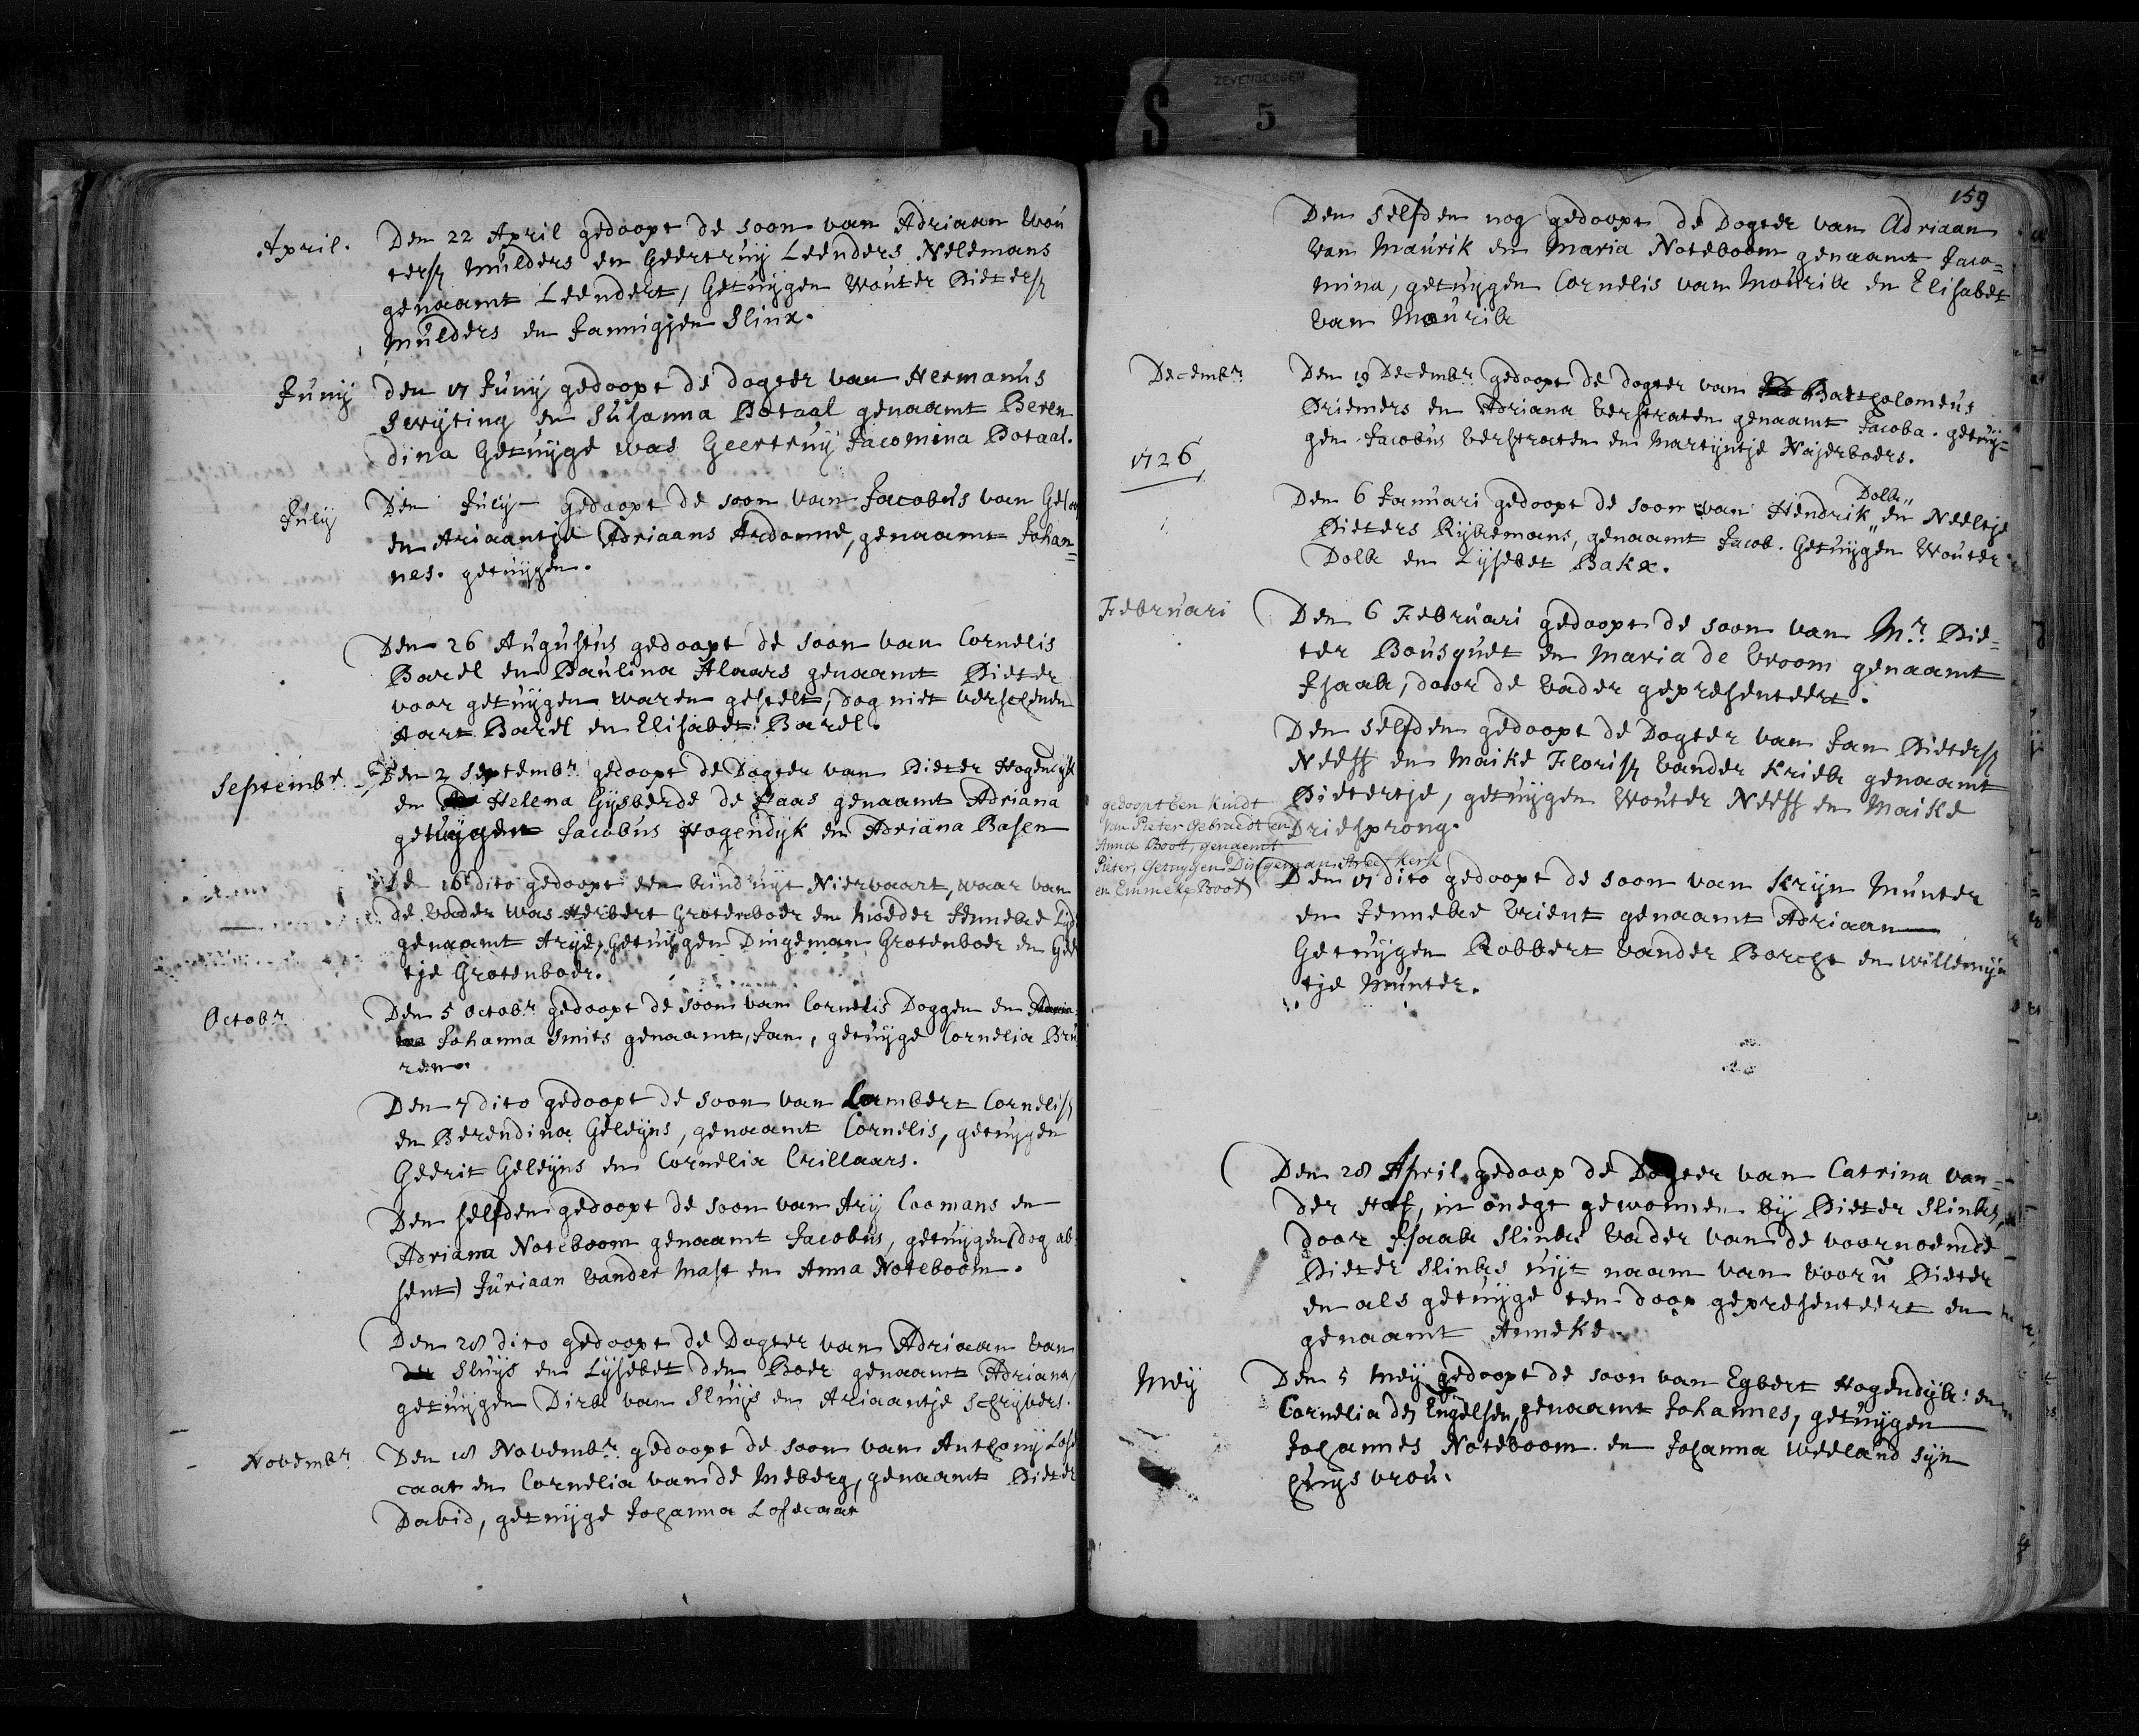 ZEVENBERGEN
S 5
April.
Den 22 April gedoopt de soon van Adriaan Wou
tersz Mulders en Geertruij Leenders Nelemans
genaamt Leendert, Getuijgen Wouter Pietersz
Mulders en Jannigjen Slinx.
Junij
Den 17 Junij gedoopt de dogter van Hermanus
Swijting en Susanna Potaal genaamt Beren
dina Getuijge was Geertruij Jacomina Potaal.
Julij
Den Julij - gedoopt de soon van Jacobus van
en Ariaantje Adriaans Ardonne, genaamt Johan=
nes. getuijgen.
Den 26 Augustus gedoopt de soon van Cornelis
Barel en Paulina Alaars genaamt Pieter
voor getuijgen waren gestelt, dog niet verschenen
Aart Barel en Elisabet Barel.
Septembr
Den 2 Septembr gedoopt de Dogter van Pieter Hogendijk
en Helena Gijsberde de Haas genaamt Adriana
getuijgen Jacobus Hogendijk en Adriana Basen
Den 16 dito gedoopt een kind uijt Niervaart, waar van
de vader was Herbert Grotenboer en moeder Jenneke
genaamt Arije, Getuijgen Dingeman Grotenboer en
tje Grotenboer.
Octobr
Den 5 Octobr gedoopt de soon van Cornelis Doggen en
Johanna Smits genaamt, Jan, getuijge Cornelia Bru
ren.
Den 7 dito gedoopt de soon van Lambert Cornelisz
en Berendina Geleijns, genaamt Cornelis, getuijgen
Geerit Geleijns en Cornelia Crillaars.
Den selfden gedoopt de soon van Arij Coomans en
Adriana Noteboom genaamt Jacobus, getuijgen (dog ab
sent) Juriaan vander Mast en Anna Noteboom.
Den 28 dito gedoopt de Dogter van Adriaan van
der Sluijs en Lijsebet den Boer genaamt Adriana,
getuijgen Dirk van Sluijs en Ariaantje Schrijvers.
Novembr
Den 18 Novembr gedoopt de soon van Anthonij Lose
caat en Cornelia van de Meberg, genaamt Pieter
David, getuijge Johanna Losecaat
159
Den selfden nog gedoopt de Dogter van Adriaan
van Maurik en Maria Noteboom genaamt Jaco=
mina, getuijgen Cornelis van Mourik en Elisabet
van Mourik
Decembr
Den 19 Decembr gedoopt de dogter van Bartholomeus
Driemers en Adriana Verstraten genaamt Jacoba. getuij=
gen Jacobus Verstraten en Martijntje Naijerboers.
1726
Den 6 Januari gedoopt de soon van Hendrik Dolk en Neeltje
Pieters Rijkemans, genaamt Jacob. Getuijgen Wouter
Dolk en Lijsebet Bakx.
Februari
Den 6 Februari gedoopt de soon van Mr. Pie=
ter Bousquet en Maria de Vroom genaamt
Isaak, door de vader gepresenteert.
Den selfden gedoopt de Dogter van Jan Pietersz
Neess en Maike Florisz vander Kriek genaamt
Pietertje, getuijgen Wouter Neess en Maike
Driesprong.
gedoopt Een Kindt
van Pieter Gebraedt en
Anna Boot, genaemt
Pieter, Getuygen Dingeman Kerk
en Emmeke Boot
Den 17 dito gedoopt de soon van Krijn Munter
en Jenneke Vrient genaamt Adriaan
Getuijgen Robbert vander Borcht en Willemijn
tje Munter.
Den 28 April gedoop de Dogter van Catrina van=
der Hof, in onegt gewonnen bij Pieter Slinks,
door Isaak Slinks vader van de voornoemde
Pieter Slinks uijt naam van voorn Pieter
en als getuijge ten doop gepresenteert en
genaamt Anneke.
Meij
Den 5 Meij gedoopt de soon van Egbert Hogendijk en
Cornelia den Engelsen, genaamt Johannes, getuijgen
Johannes Noteboom en Johanna Weeland sijn
huijsvrou.